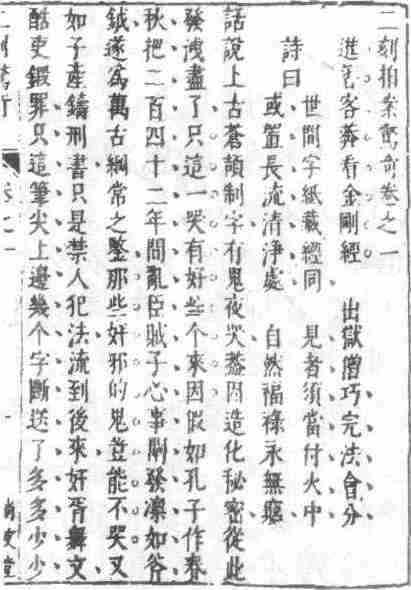 二刻拍案驚奇卷之一
進香客莽看金剛經　出獄僧巧完法會分
詩曰
世間字紙藏經同　見者須當付火中
或置長流清淨處　自然福祿永無窮
話說上古蒼頡制字有鬼夜哭葢因造化秘密從此
發洩盡了只這一哭有好些个來因假如孔子作春
秋把二百四十二年間亂臣賊子心事闡發凜如斧
鉞遂爲萬古綱常之鑒那些奸邪的鬼豈能不哭又
如子產鑄刑書只是禁人犯法流到後來奸胥舞文
酷吏鍛罪只這筆尖上邊幾个字斷送了多多少少
二刻驚奇
卷之一
尚友堂